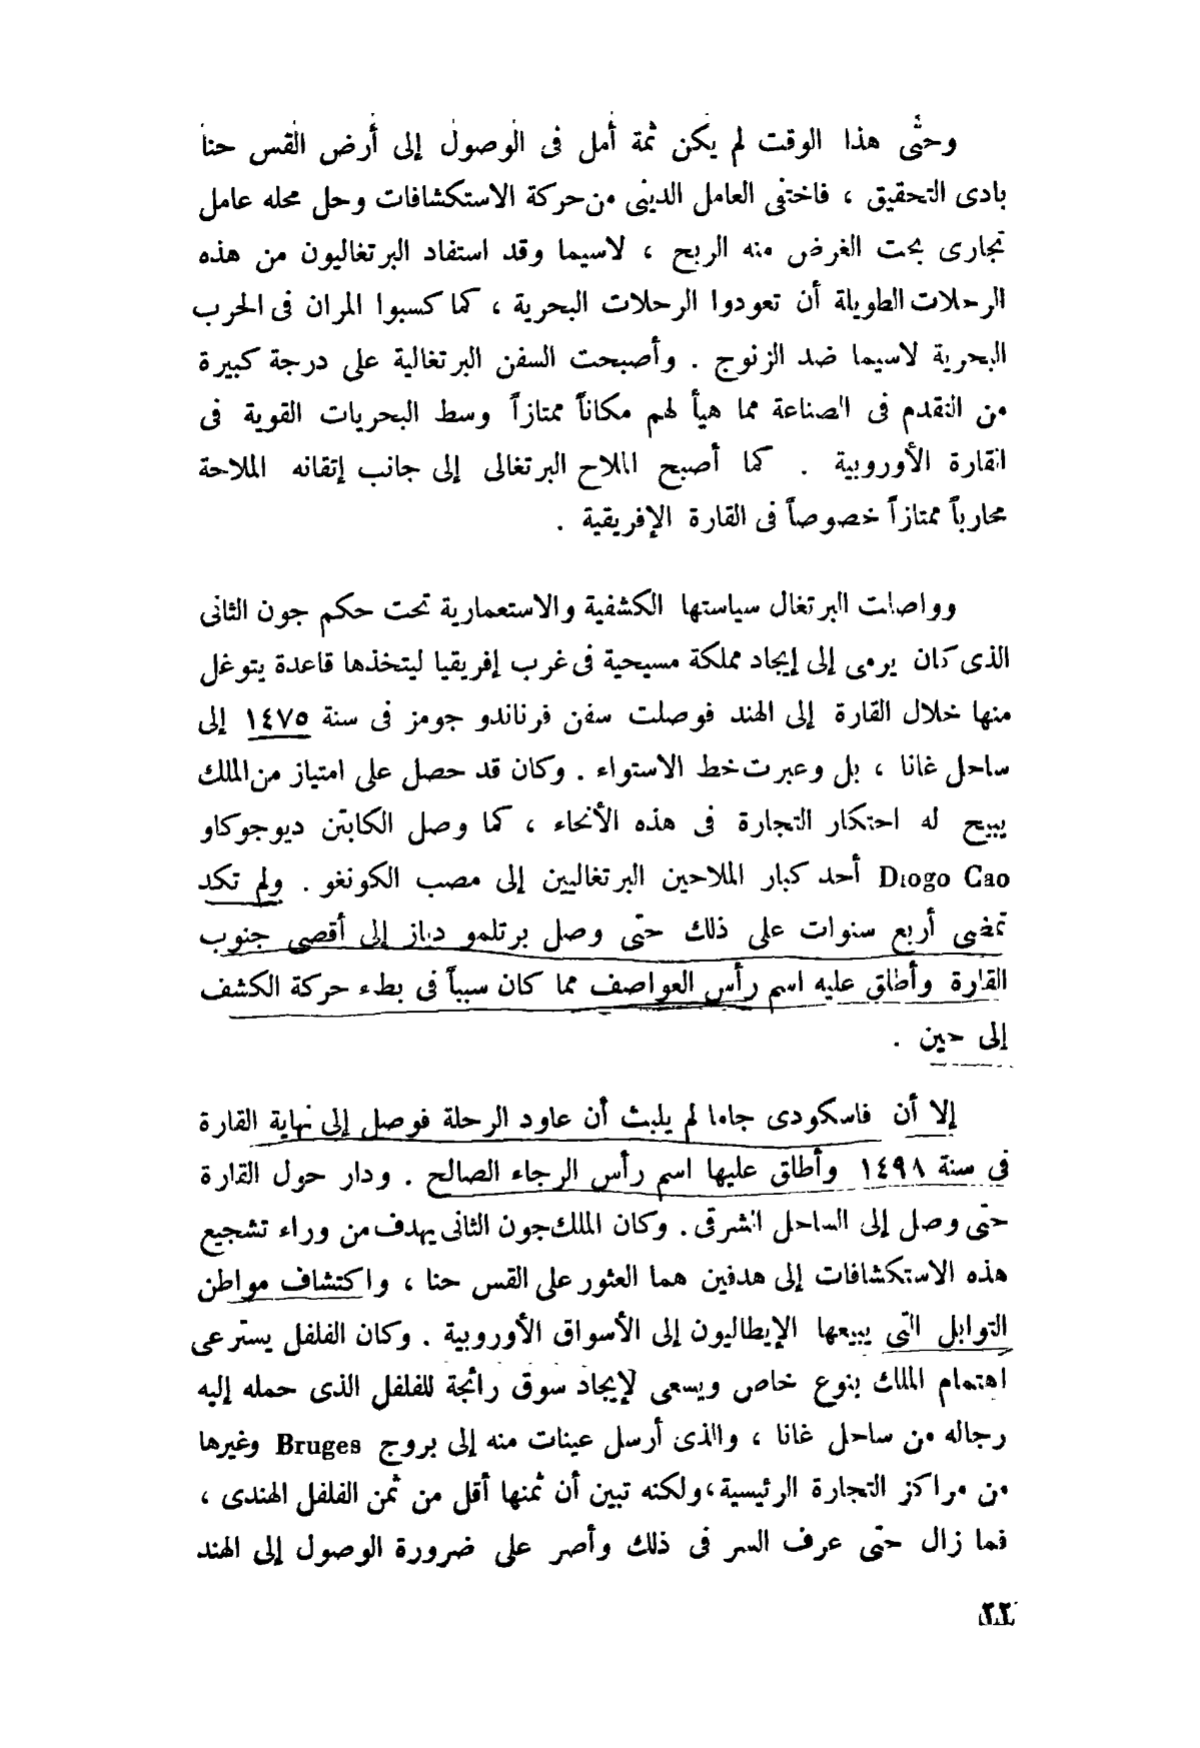 وحتى هذا الوقت لم يكن ثمة أمل فى الوصول إلى أرض القس حنا
بادى التحقيق ، فاختفى العامل الدينى من حركة الاستكشافات وحل محله عامل
تجارى بحت الغرض منه الربح ، لاسيما وقد استفاد البرتغاليون من هذه
الرحلات الطويلة أن تعودوا الرحلات البحرية ، كما كسبوا المران فى الحرب
البحرية لاسيما ضد الزنوج . وأصبحت السفن البرتغالية على درجة كبيرة
من التقدم فى الصناعة مما هيأ لهم مكاناً ممتازاً وسط البحريات القوية فى
القارة الأوروبية . كما أصبح الملاح البرتغالى إلى جانب إتقانه الملاحة
محارباً ممتازاً خصوصاً فى القارة الإفريقية .
وواصلت البرتغال سياستها الكشفية والاستعمارية تحت حكم جون الثانى
الذى كان يرمى إلى إيجاد مملكة مسيحية فى غرب إفريقيا ليتخذها قاعدة يتوغل
منها خلال القارة إلى الهند فوصلت سفن فرناندو جومز فى سنة ١٤٧٥ إلى
ساحل غانا ، بل وعبرت خط الاستواء . وكان قد حصل على امتياز من الملك
يبيح له احتكار التجارة فى هذه الأنحاء ، كما وصل الكابتن ديوجوكاو
Diogo Cao أحد كبار الملاحين البرتغاليين إلى مصب الكونغو . ولم تكد
تمضى أربع سنوات على ذلك حتى وصل برتلمو دياز إلى أقصى جنوب
القارة وأطلق عليه اسم رأس العواصف مما كان سبباً فى بطء حركة الكشف
إلى حين .
إلا أن فاسكودى جاما لم يلبث أن عاود الرحلة فوصل إلى نهاية القارة
فى سنة ١٤٩٨ وأطلق عليها اسم رأس الرجاء الصالح . ودار حول القارة
حتى وصل إلى الساحل الشرقى . وكان الملك جون الثانى يهدف من وراء تشجيع
هذه الاستكشافات إلى هدفين هما العثور على القس حنا ، واكتشاف مواطن
التوابل التى يبيعها الإيطاليون إلى الأسواق الأوروبية . وكان الفلفل يسترعى
اهتمام الملك بنوع خاص ويسعى لإيجاد سوق رائجة للفلفل الذى حمله إليه
رجاله من ساحل غانا ، والذى أرسل عينات منه إلى بروج Bruges وغيرها
من مراكز التجارة الرئيسية ، ولكنه تبين أن ثمنها أقل من ثمن الفلفل الهندى ،
فما زال حتى عرف السر فى ذلك وأصر على ضرورة الوصول إلى الهند
٢٢